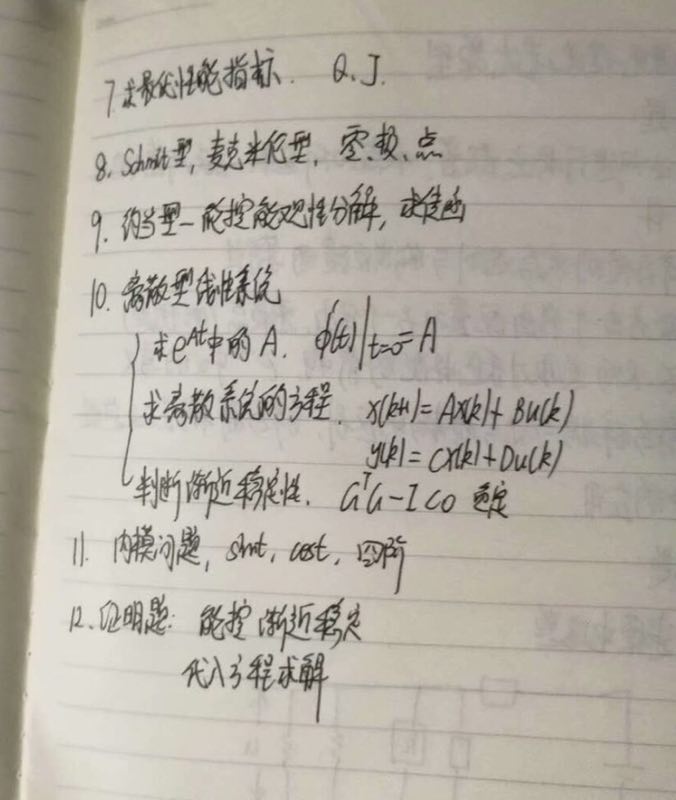 7. 求最优性能指标. Q、J.
8. Schmit型, 麦克米伦型, 零、极、点
9. 约当型—能控能观性分解, 求传函
10. 离散型线性系统
求e^At中的A. ϕ'(t)|t=0 = A
求离散系统的方程. x(k+1)=Ax(k)+Bu(k)
y(k)=Cx(k)+Du(k)
判断渐近稳定性. G^TG-I<0 负定
11. 内模问题, sint, cost, 四阶
12. 证明题: 能控 渐近稳定
代入方程求解